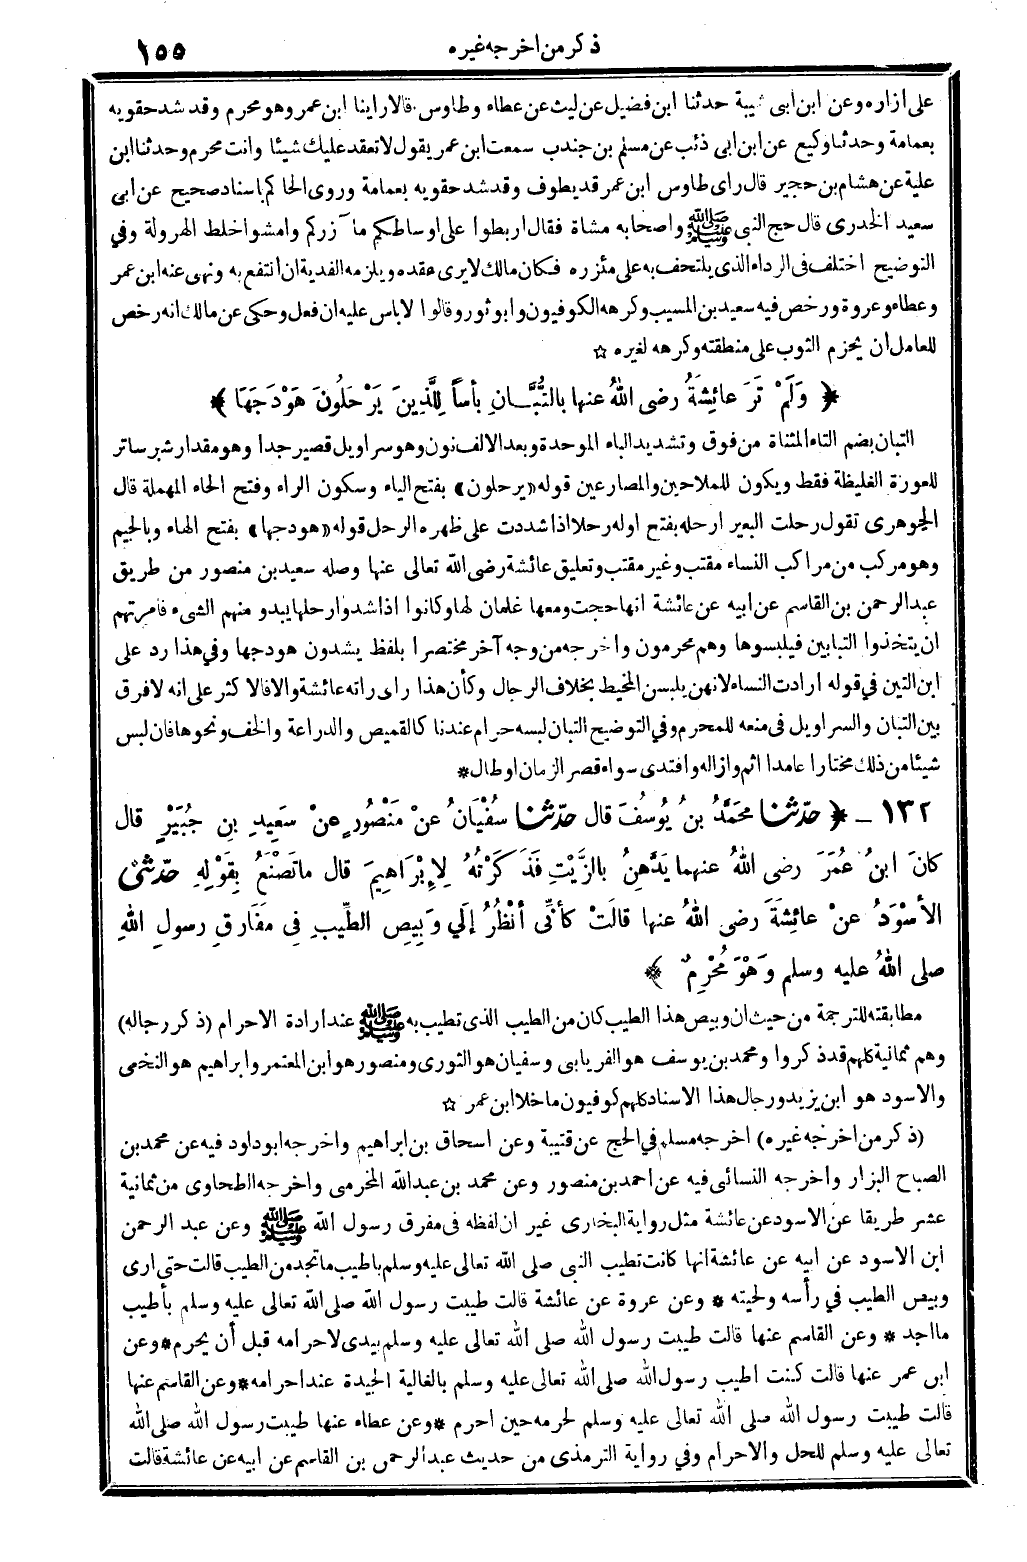 ذكر من اخرجه غيره ١٥٥
على ازاره وعن ابن ابى شيبة حدثنا ابن فضيل عن ليث عن عطاء وطاوس قالا راينا ابن عمر وهو محرم وقد شد حقويه
بعمامة وحدثنا وكيع عن ابن ابى ذئب عن مسلم بن جندب سمعت ابن عمر يقول لا تعقد عليك شيئا وانت محرم وحدثنا ابن
علية عن هشام بن حجير قال راى طاوس ابن عمر قد يطوف وقد شد حقويه بعمامة وروى الحاكم باسناد صحيح عن ابى
سعيد الخدرى قال حج النبى ﷺ واصحابه مشاة فقال اربطوا على اوساطكم مآزركم وامشوا خلط الهرولة وفي
التوضيح اختلف فى الرداء الذى يلتحف به على مئزره فكان مالك لا يرى عقده ويلزمه الفدية ان انتفع به ونهى عنه ابن عمر
وعطاء وعروة ورخص فيه سعيد بن المسيب وكرهه الكوفيون وابو ثور وقالوا لا باس عليه ان فعل وحكى عن مالك انه رخص
للعامل أن يحزم الثوب على منطقته وكرهه لغيره ☆
﴿ وَلَمْ تَرَ عائِشَةُ رضى اللهُ عنها بالتُّبَّـانِ بأساً لِلَّذِينَ يَرْحَلُونَ هَوْدَجَهَا ﴾
التبان بضم التاء المثناة من فوق وتشديد الباء الموحدة وبعد الالف نون وهو سراويل قصير جدا وهو مقدار شبر ساتر
للعورة الغليظة فقط ويكون للملاحين والمصارعين قوله «يرحلون» بفتح الياء وسكون الراء وفتح الحاء المهملة قال
الجوهرى تقول رحلت البعير ارحله بفتح اوله رحلا اذا شددت على ظهره الرحل قوله «هودجها» بفتح الهاء وبالجيم
وهو مركب من مراكب النساء مقتب وغير مقتب وتعليق عائشة رضى الله تعالى عنها وصله سعيد بن منصور من طريق
عبد الرحمن بن القاسم عن ابيه عن عائشة انها حجت ومعها غلمان لها وكانوا اذا شدوا رحلها يبدو منهم الشىء فامرتهم
ان يتخذوا التبابين فيلبسوها وهم محرمون واخرجه من وجه آخر مختصرا بلفظ يشدون هودجها وفي هذا رد على
ابن التين في قوله ارادت النساء لانهن يلبسن المخيط بخلاف الرجال وكأن هذا راى راته عائشة والا فالاكثر على انه لا فرق
بين التبان والسراويل فى منعه للمحرم وفي التوضيح التبان لبسه حرام عندنا كالقميص والدراعة والخف ونحوها فان لبس
شيئا من ذلك مختارا عامدا اثم وازاله وافتدى سواء قصر الزمان او طال*
١٣٢ ـ ﴿ حدّثنا محَمَّدُ بنُ يُوسُفَ قال حدّثنا سُفْيَانُ عنْ مَنْصُورٍ عنْ سَعِيدِ بنِ جُبَيْرٍ قال
كانَ ابنُ عُمَرَ رضى اللهُ عنهما يَدَّهِنُ بالزَّيْتِ فَذَ كَرْتُهُ لِإِبْرَاهِيمَ قال ماتَصْنَعُ بِقَوْلِهِ حدّثنى
الأسْوَدُ عنْ عائِشَةَ رضى اللهُ عنها قالَتْ كأنِّى أنْظُرُ إلَي وَبِيصِ الطِّيبِ فِى مَفَارِقِ رسولِ اللهِ
صلى اللهُ عليه وسلم وَهْوَ مُحْرِمٌ ﴾
مطابقته للترجمة من حيث ان وبيص هذا الطيب كان من الطيب الذى تطيب به ﷺ عند ارادة الاحرام (ذكر رجاله)
وهم ثمانية كلهم قد ذكروا ومحمد بن يوسف هو الفريابى وسفيان هو الثورى ومنصور هو ابن المعتمر وابراهيم هو النخمى
والاسود هو ابن يزيد ورجال هذا الاسناد كلهم كوفيون ما خلا ابن عمر ☆
(ذكر من اخرجه غيره) اخرجه مسلم في الحج عن قتيبة وعن اسحاق بن ابراهيم واخرجه ابو داود فيه عن محمد بن
الصباح البزار واخرجه النسائى فيه عن احمد بن منصور وعن محمد بن عبد الله المخرمى واخرجه الطحاوى من ثمانية
عشر طريقا عن الاسود عن عائشة مثل رواية البخارى غير ان لفظه فى مفرق رسول الله ﷺ وعن عبد الرحمن
ابن الاسود عن ابيه عن عائشة انها كانت تطيب النبى صلى الله تعالى عليه وسلم باطيب ما تجد من الطيب قالت حتى ارى
وبيص الطيب في رأسه ولحيته * وعن عروة عن عائشة قالت طيبت رسول الله صلى الله تعالى عليه وسلم بأطيب
ما اجد * وعن القاسم عنها قالت طيبت رسول الله صلى الله تعالى عليه وسلم بيدى لاحرامه قبل أن يحرم*وعن
ابن عمر عنها قالت كنت اطيب رسول الله صلى الله تعالى عليه وسلم بالغالية الجيدة عند احرامه*وعن القاسم عنها
قالت طيبت رسول الله صلى الله تعالى عليه وسلم لحرمه حين احرم *وعن عطاء عنها طيبت رسول الله صلى الله
تعالى عليه وسلم للحل والاحرام وفي رواية الترمذى من حديث عبد الرحمن بن القاسم عن ابيه عن عائشة قالت